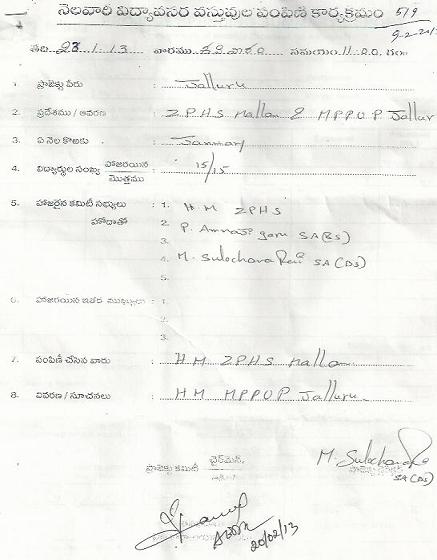 నెలవారి విద్యావసర వస్తువుల పంపిణి కార్యక్రమం 5/9
తేది 28/1/13 వారము సమయం 11.00 గం
1. ప్రాజెక్టు పేరు : Jalluru
2. ప్రదేశము / ఆవరణ : ZPHS Mallam & MPPUP Jallur
3. ఏ నెల కొఱకు : January
4. విద్యార్థుల సంఖ్య హాజరయిన / మొత్తము : 15/15
5. హాజరైన కమిటీ సభ్యులు : 1. HM ZPHS
హోదాతో 2. P. garu SA(BS)
3.
4. M. Sulochana SA(BS)
5.
6. హాజరయిన ఇతర ముఖ్యులు : 1.
2.
3.
7. పంపిణీ చేసిన వారు : HM ZPHS Mallam
8. వివరణ / సూచనలు : HM MPPUP Jalluru
చైర్‌మెన్, M. Sulochana
ప్రాజెక్టు కమిటీ
SA(BS)
20/02/13